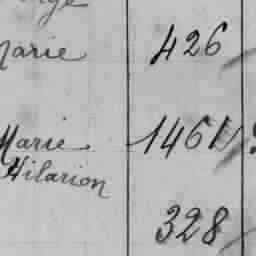 Marie 426
Marie 1461
Hilarion
328